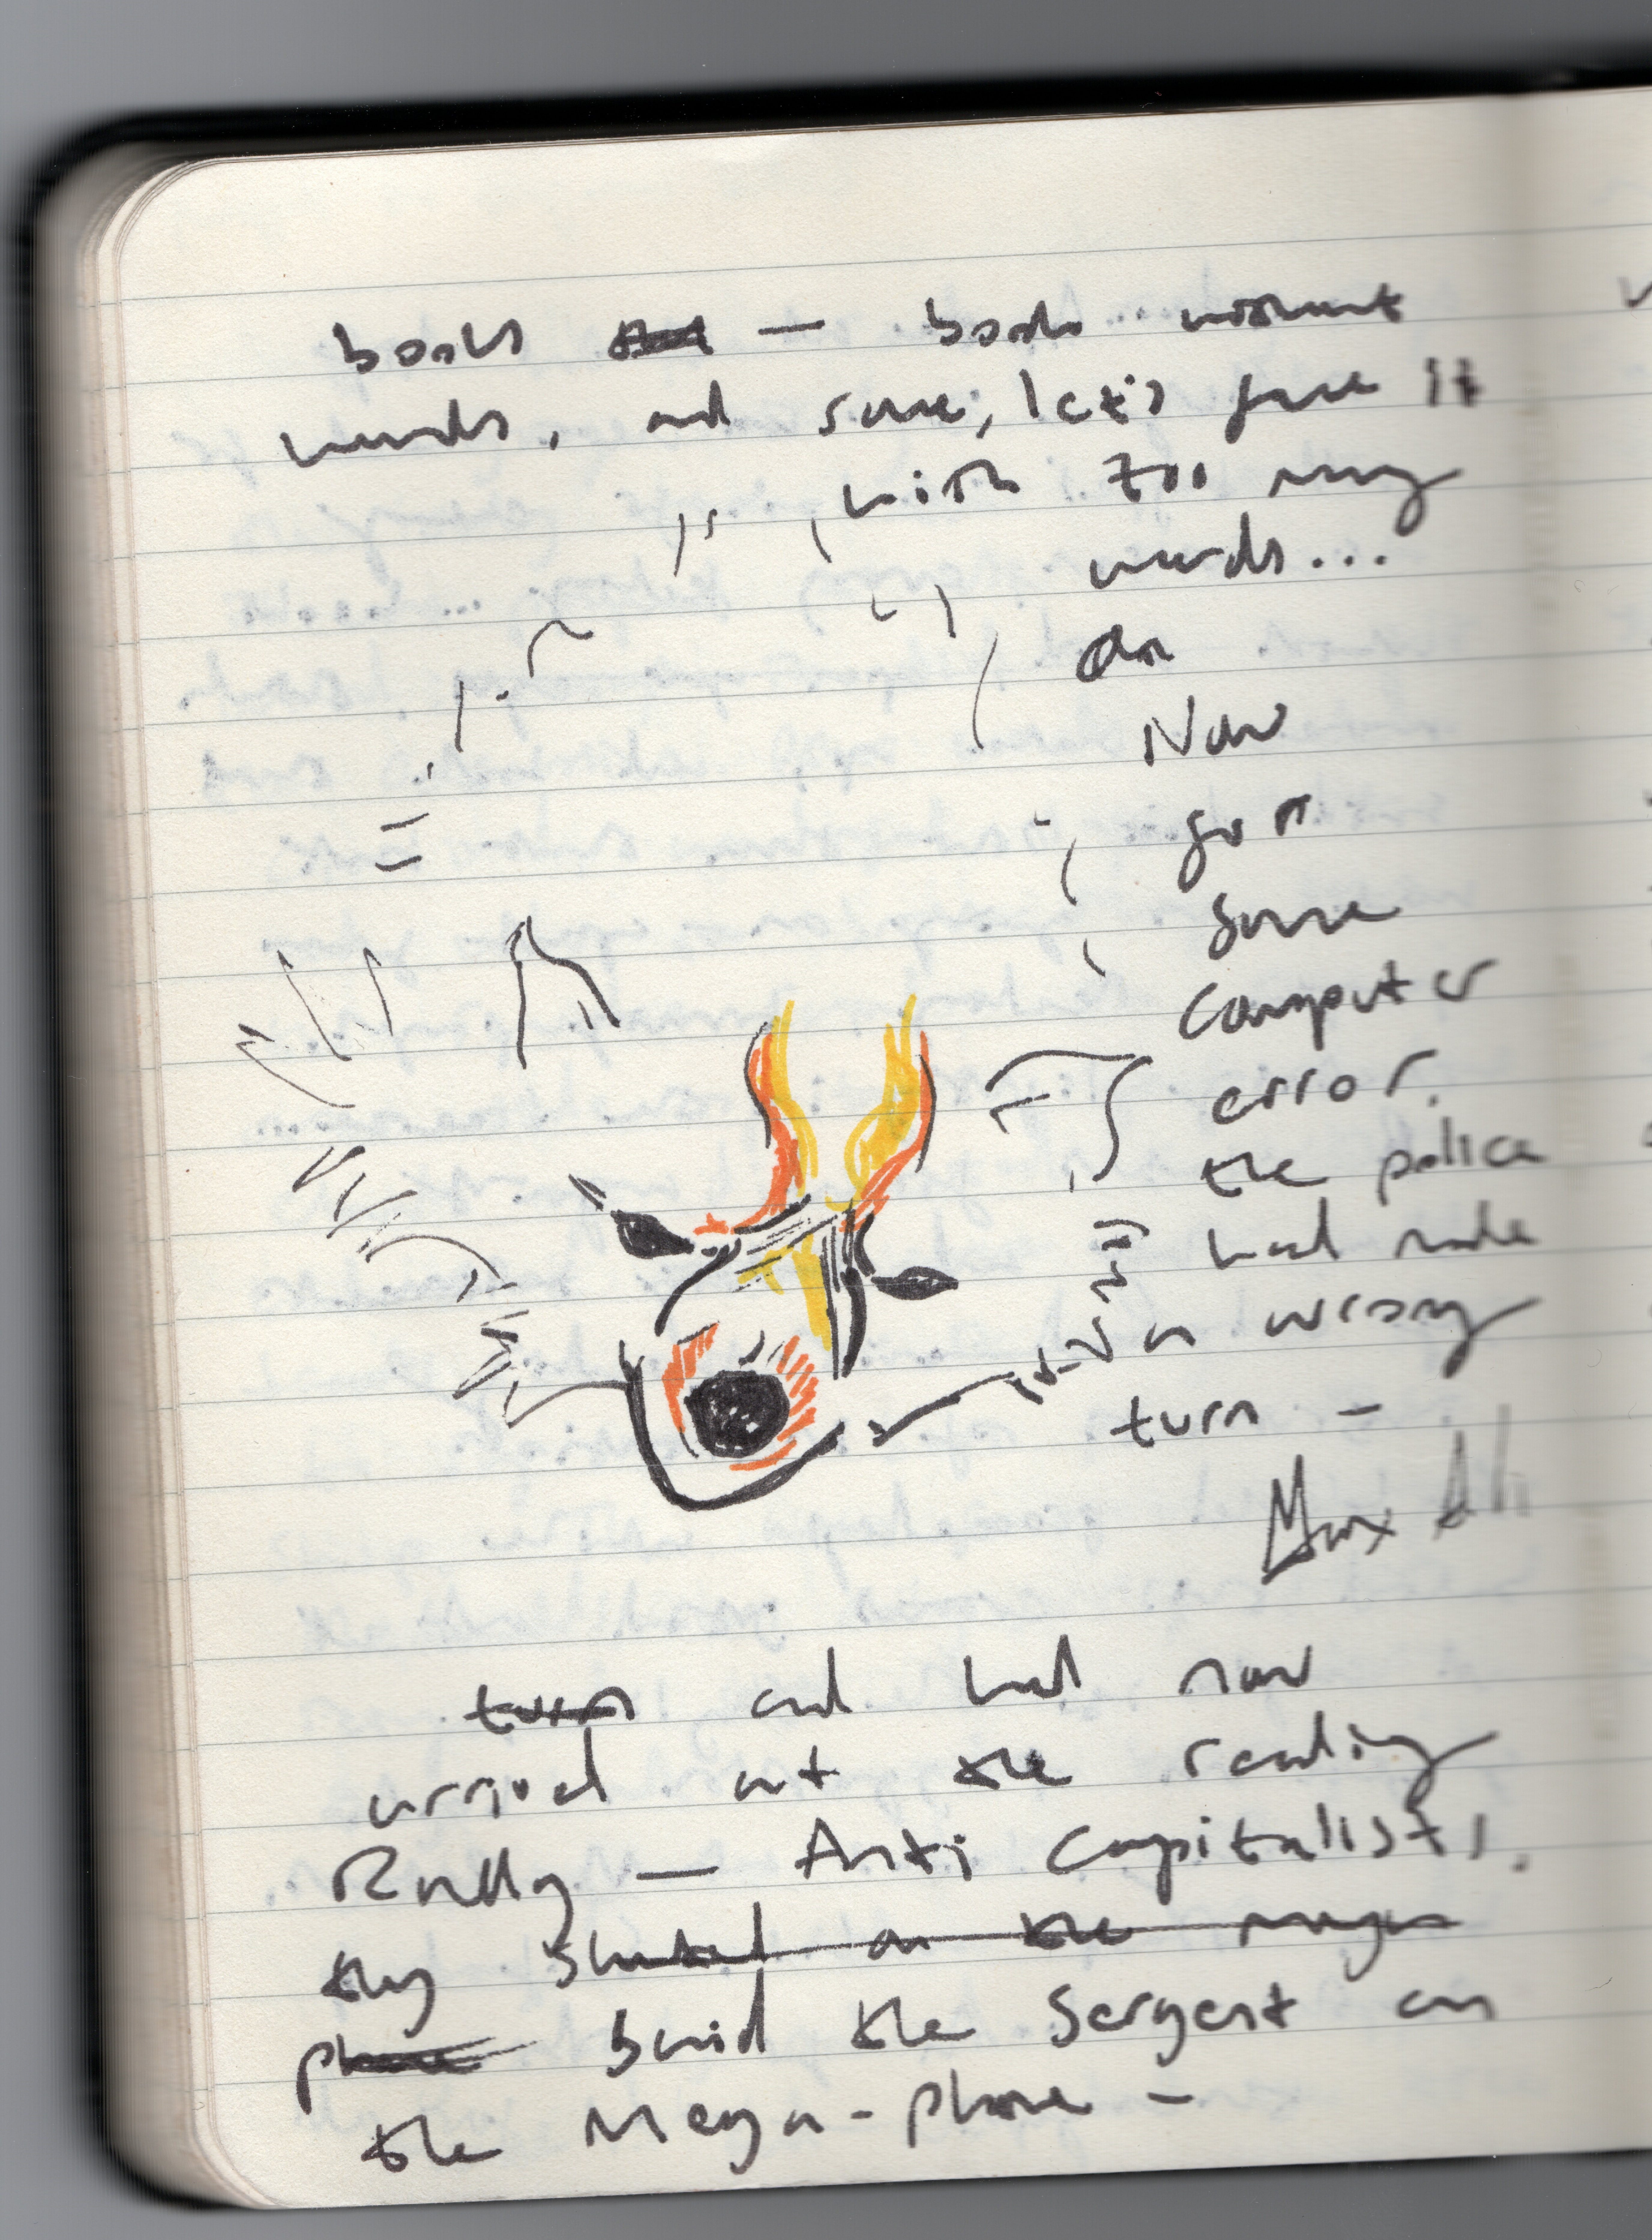 books — books without
words, and some, let's face it
, with too many
words...
On
Now
for
some
computer
error.
the police
had made
a wrong
turn –
Max Ali
turn and had now
arrived at the reading
Rally — Anti Capitalists,
they shouted on the mega
phone said the Sergent on
the Mega-phone –